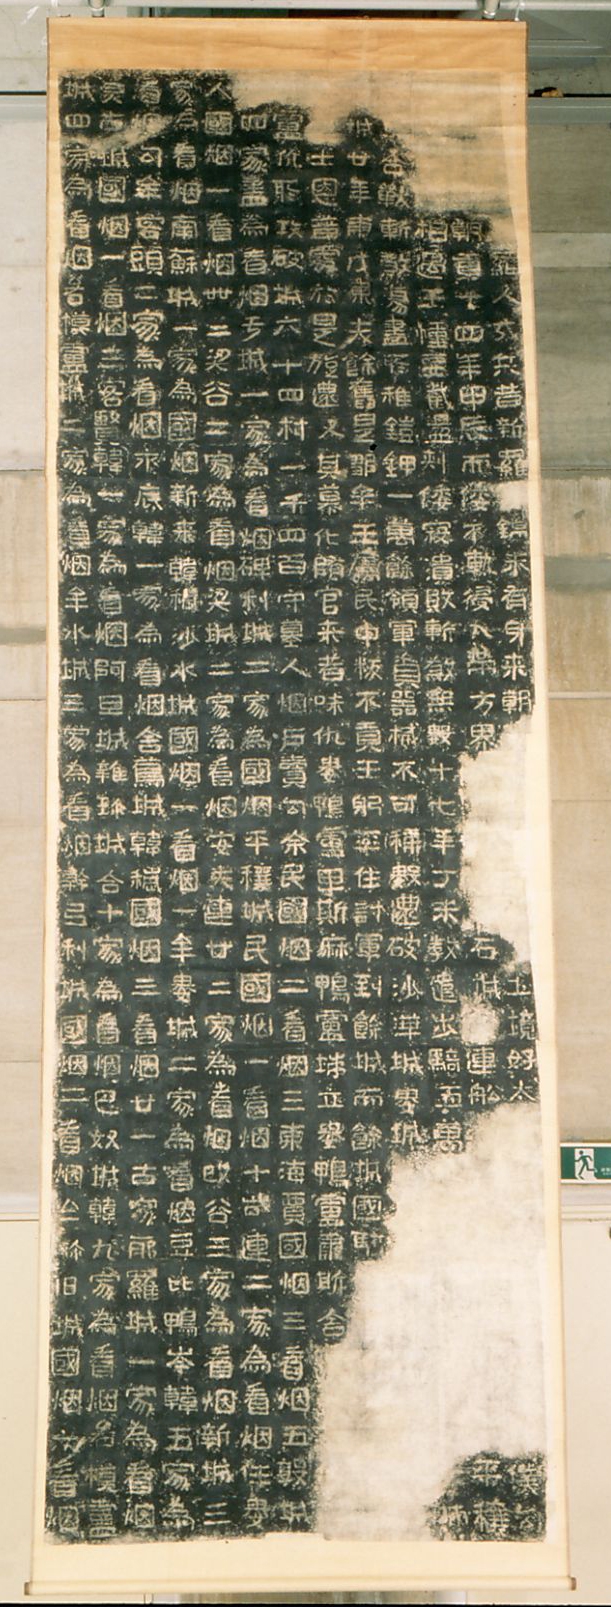 羅人戍兵昔新羅 錦未有身來朝 土境好太 僕勾
朝貢十四年甲辰而倭不軌侵入帶方界 石城 連船 平穰
相遇王幢要截盪刺倭寇潰敗斬煞無數十七年丁未教遣步騎五萬 師
合戰斬煞蕩盡所稚鎧鉀一萬餘領軍資器械不可稱數還破沙溝城婁城
城廿年庚戌東夫餘舊是鄒牟王屬民中叛不貢王躬率住討軍到餘城而餘城國駭
王恩普覆於是旋還又其慕化隨官來者味仇婁鴨盧卑斯麻鴨盧椯立婁鴨盧肅斯舍
盧凡所攻破城六十四村一千四百守墓人烟戶賣勾余民國烟二看烟三東海賈國烟三看烟五敦城
四家盡為看烟于城一家為看烟碑利城二家為國烟平穰城民國烟一看烟十訾連二家為看烟住婁
人國烟一看烟卌二梁谷二家為看烟梁城二家為看烟安夫連廿二家為看烟改谷三家為看烟新城三
家為看烟南蘇城一家為國烟新來韓穢沙水城國烟一看烟一牟婁城二家為看烟豆比鴨岑韓五家為
看烟勾牟客頭二家為看烟永底韓一家為看烟舍蔦城韓穢國烟三看烟廿一古家耶羅城一家為看烟
炅古城國烟一看烟三客賢韓一家為看烟阿旦城雜珍城合十家為看烟巴奴城韓九家為看烟臼模盧
城四家為看烟各模盧城二家為看烟牟水城三家為看烟幹弓利城國烟二看烟三彌旧城國烟七看烟